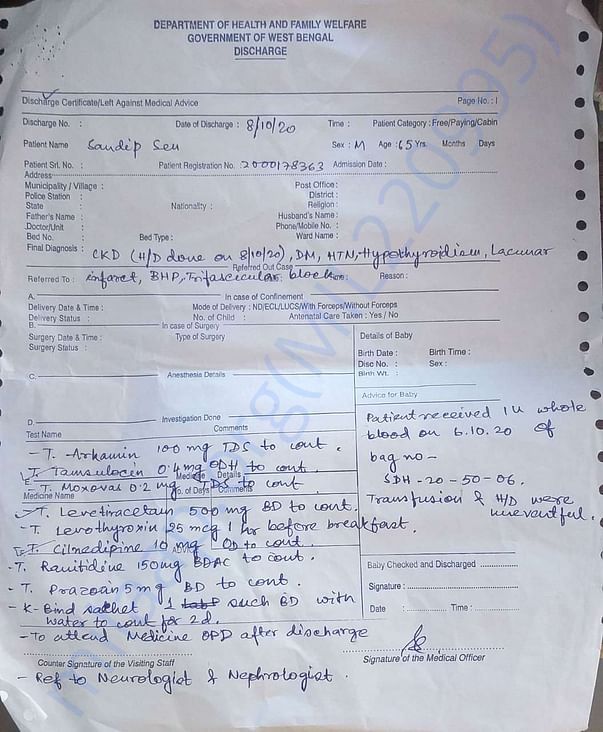 DEPARTMENT OF HEALTH AND FAMILY WELFARE
GOVERNMENT OF WEST BENGAL
DISCHARGE
Discharge Certificate/Left Against Medical Advice Page No. : I
Discharge No. : Date of Discharge : 8/10/20 Time : Patient Category : Free/Paying/Cabin
Patient Name Sandip Sen Sex : M Age : 65 Yrs. Months Days
Patient Srl. No. : Patient Registration No. 2000178363 Admission Date :
Address
Municipality / Village : Post Office :
Police Station : District :
State : Nationality : Religion :
Father's Name : Husband's Name :
Doctor/Unit : Phone/Mobile No. :
Bed No. Bed Type : Ward Name :
Final Diagnosis : CKD (H/D done on 8/10/20), DM, HTN, Hypothyroidism, Lacunar
Referred Out Case
Referred To : infarct, BHP, Trifascicular block Reason :
A. In case of Confinement
Delivery Date & Time : Mode of Delivery : ND/ECL/LUCS/With Forceps/Without Forceps
Delivery Status : No. of Child : Antenatal Care Taken : Yes / No
B. In case of Surgery
Surgery Date & Time : Type of Surgery
Surgery Status :
Details of Baby
Birth Date : Birth Time :
Disc No. : Sex :
Birth Wt. :
C. Anesthesia Details
Advice for Baby
D. Investigation Done
Test Name Comments
Patient received 1U whole
blood on 6.10.20 of
bag no -
SDH-20-50-06.
Transfusion & H/D were
uneventful.
- T. Arkamin 100 mg TDS to cont.
T. Tamsulocin 0.4 mg to cont.
Medicine Details
- T. Moxovas 0.2 mg TDS to cont
Medicine Name No. of Days Comments
T. Levetiracetam 500 mg BD to cont.
- T. Levothyroxin 25 mcg 1 hr before breakfast.
T. Cilnedipine 10 mg OD to cont.
- T. Ranitidine 150mg BDAC to cont.
- T. Prazosin 5 mg BD to cont.
- K-Bind sachet 1 such BD with
water to cont for 2d.
- To attend Medicine OPD after discharge
Baby Checked and Discharged
Signature :
Date : Time :
Counter Signature of the Visiting Staff
Signature of the Medical Officer
- Ref to Neurologist & Nephrologist.